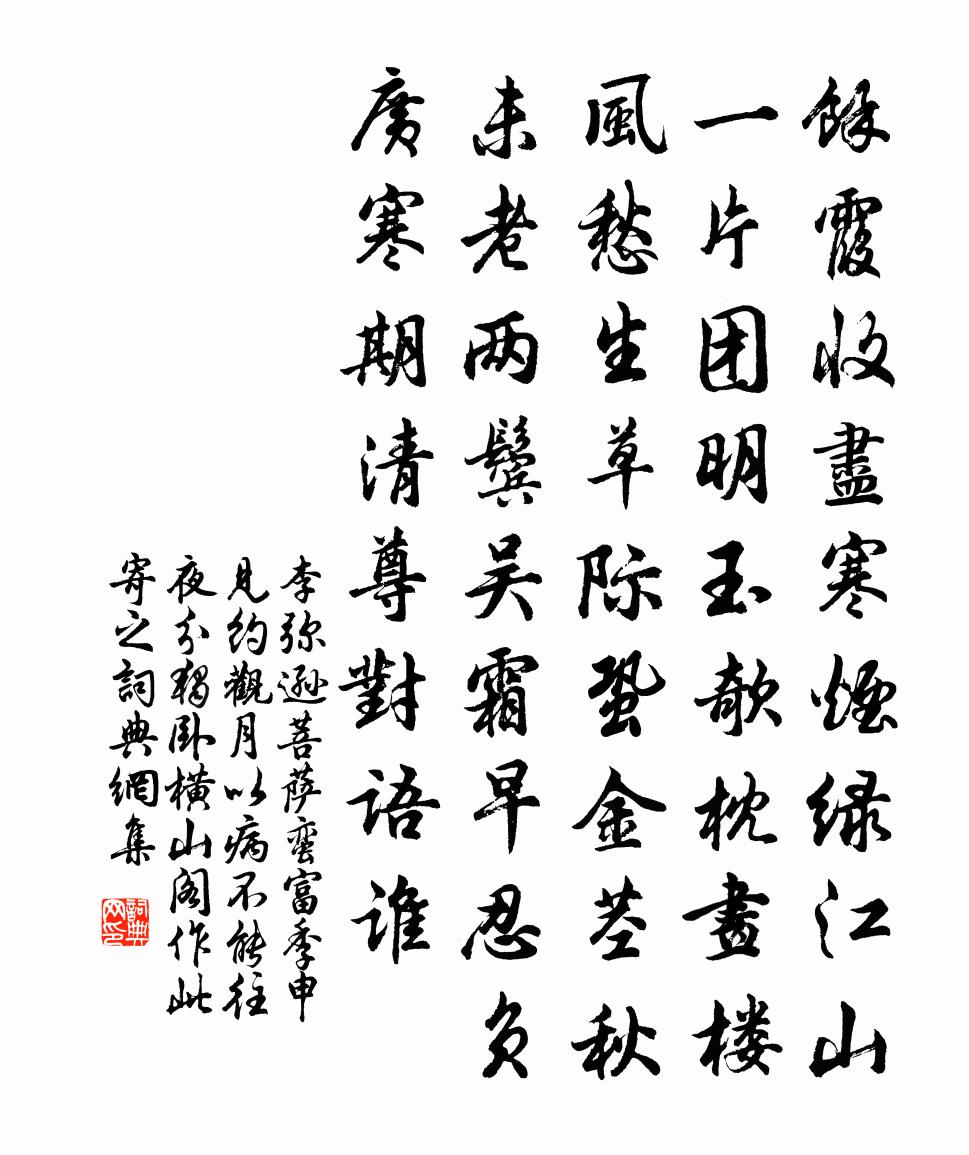 餘霞收盡寒煙绿江山
一片团明玉欹枕畫楼
風愁生草际蛩金茎秋
未老两鬓吴霜早忍负
廣寒期清尊對语谁
李弥逊菩萨蛮富季申
見约觀月以病不能往
夜分獨卧横山阁作此
寄之詞典網集
詞典
网印